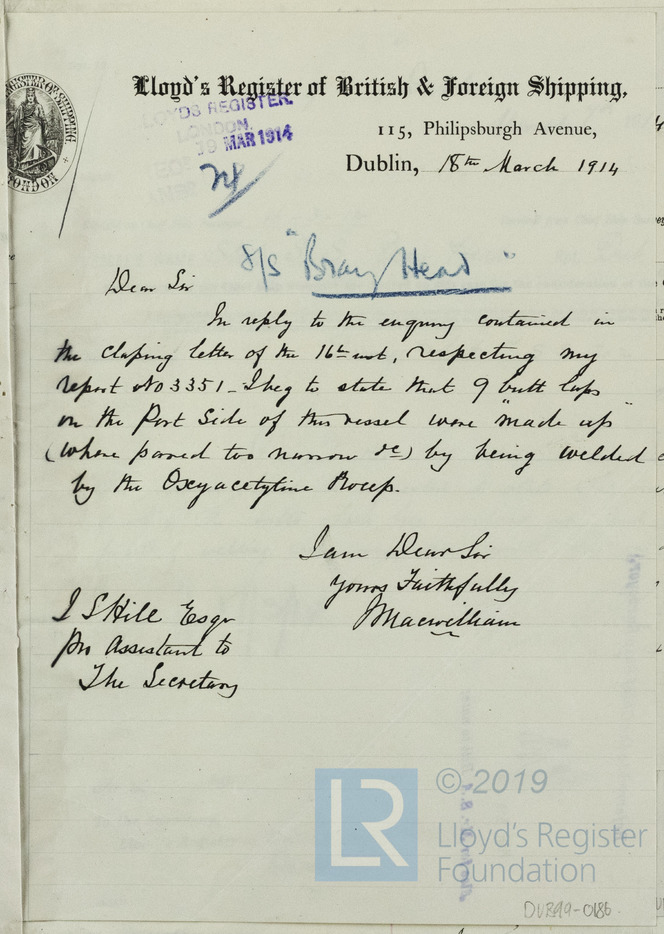 Lloyd's Register of British & Foreign Shipping,
115, Philipsburgh Avenue,
Dublin, 18th March 1914
LLOYDS REGISTER.
LONDON.
19 MAR 1914
LONDON
S/S "Bray Head"
Dear Sir
In reply to the enquiry contained in
the classing letter of the 16th inst, respecting my
report No 3351 - I beg to state that 9 butt laps
on the Port Side of this vessel were "made up"
(where pared too narrow &c) by being welded
by the Oxyacetyline Process.
I am Dear Sir
Yours Faithfully
Macwilliam
J S Hill Esqr
Pro Assistant to
The Secretary
LR
© 2019
Lloyd's Register
Foundation
DUB99-0186